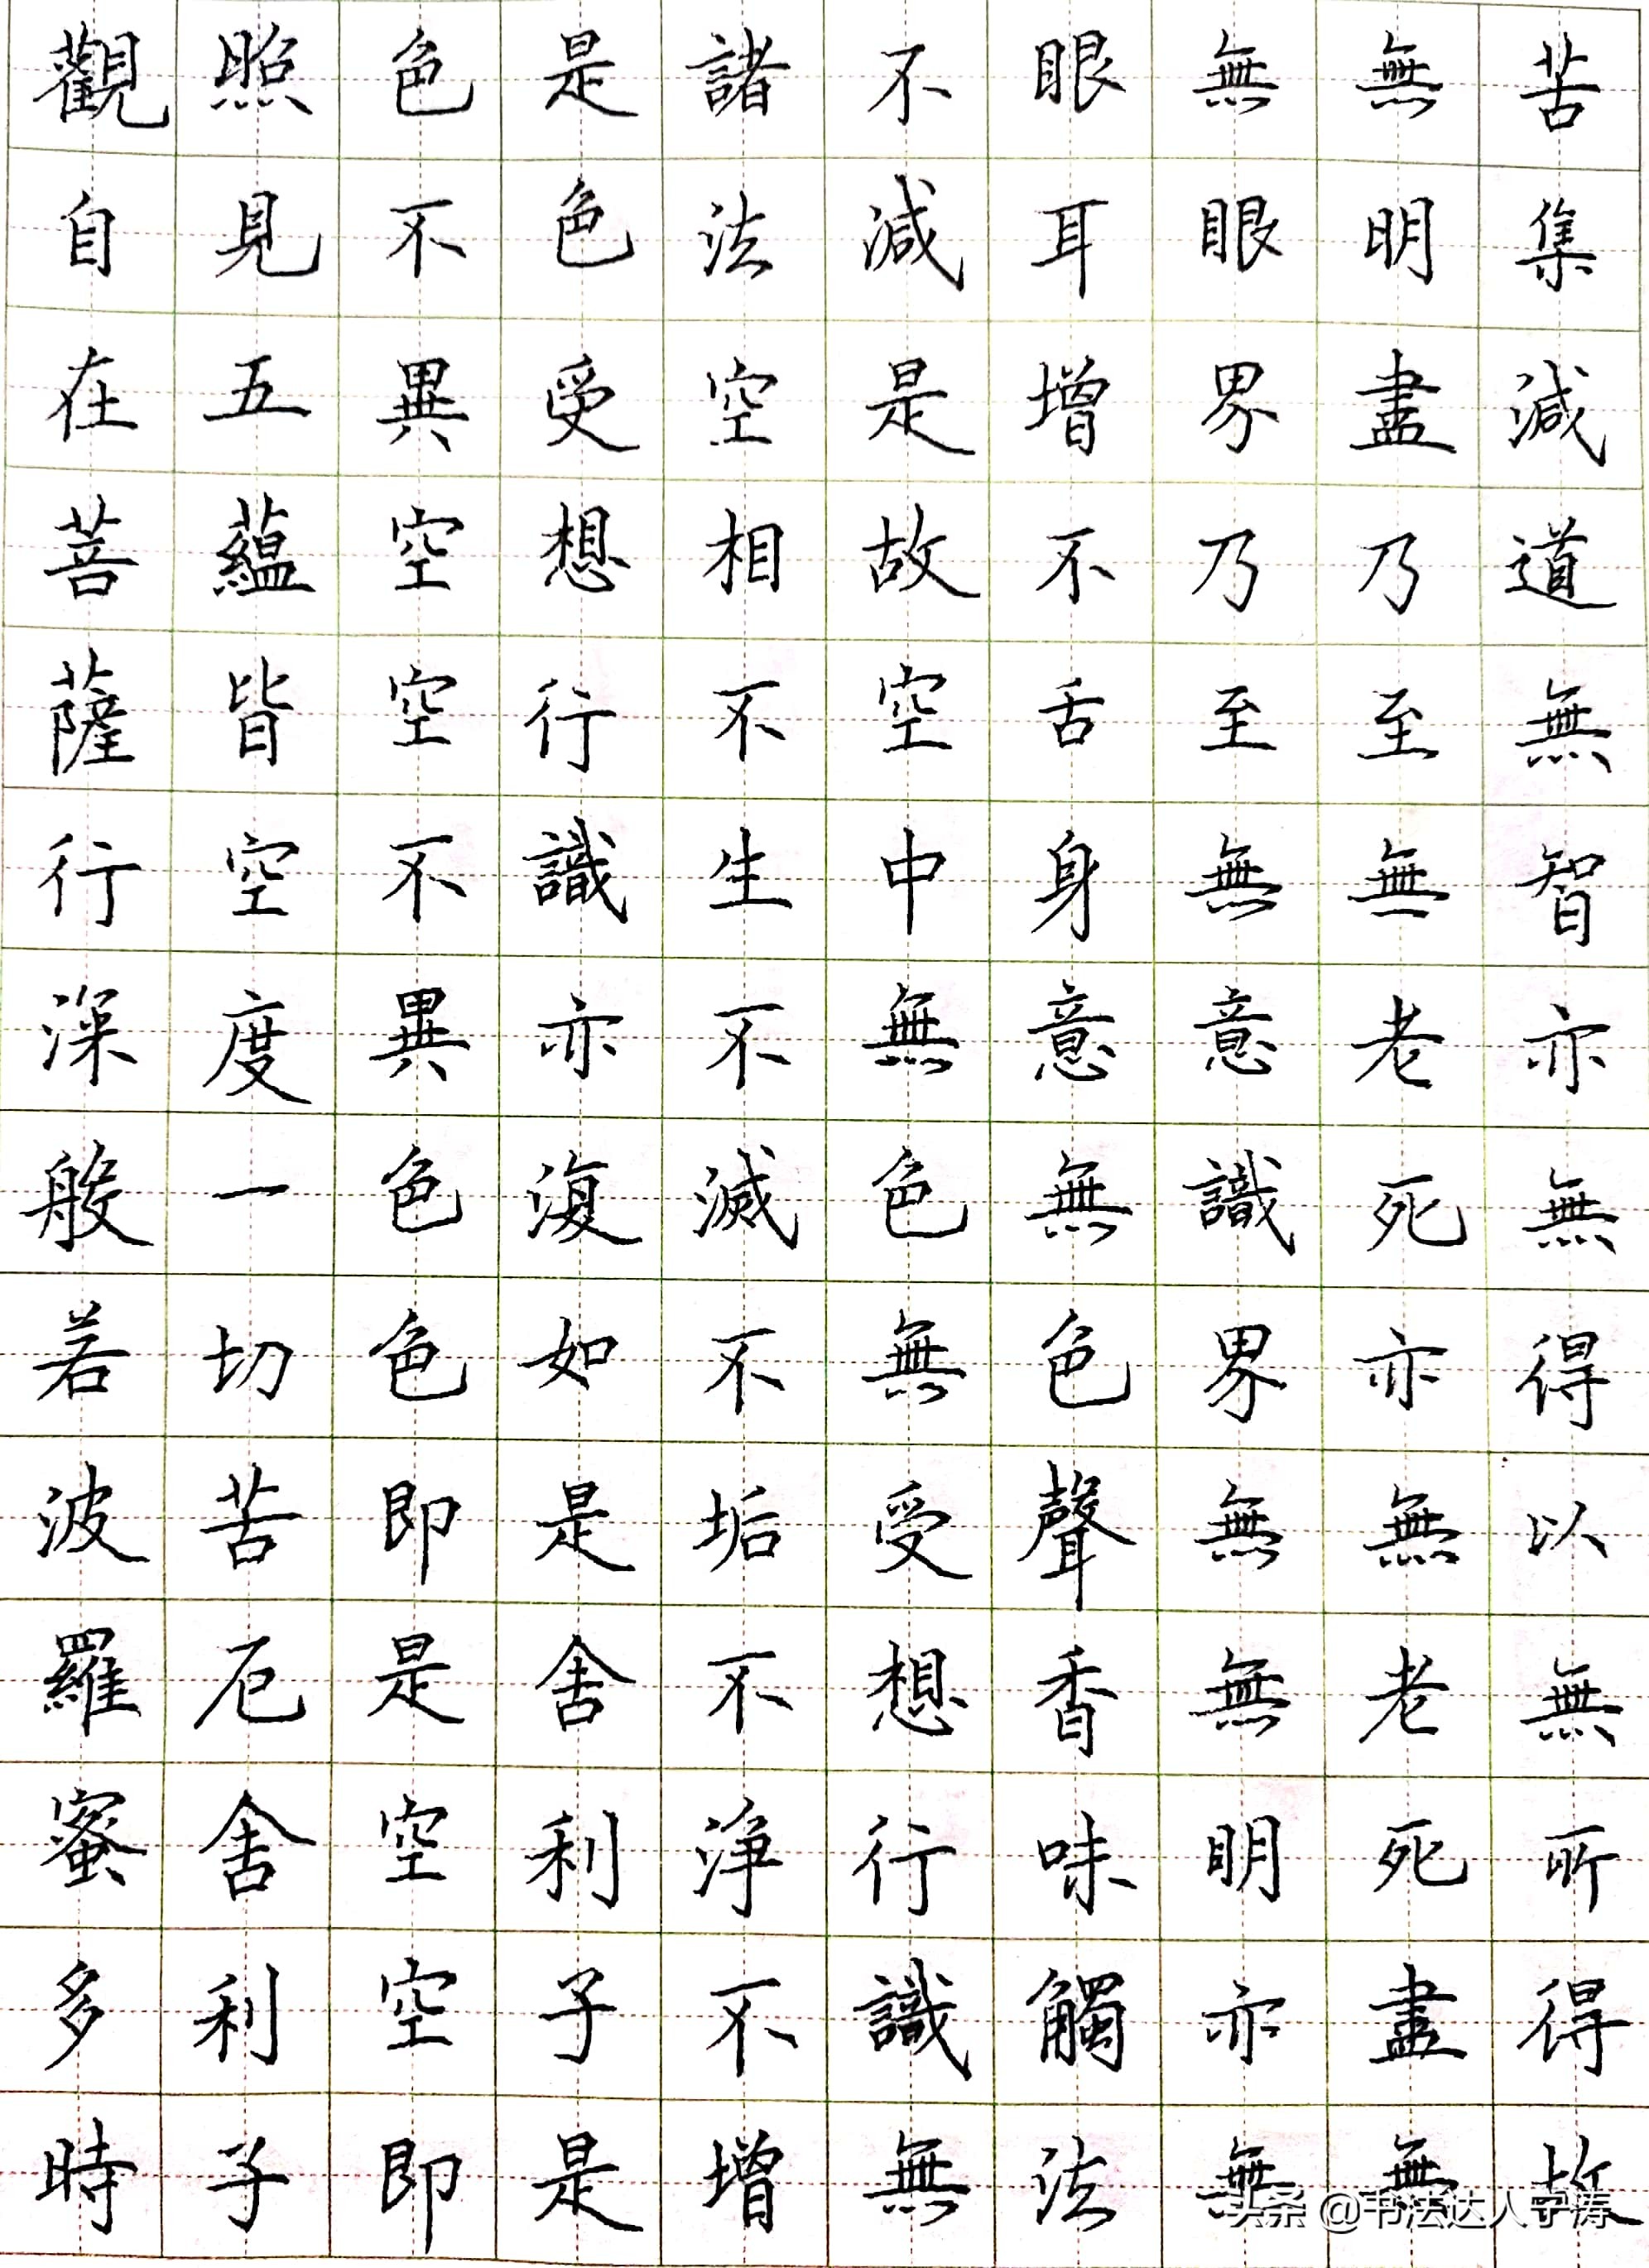 觀自在菩薩行深般若波羅蜜多時
照見五蘊皆空度一切苦厄舍利子
色不異空空不異色色即是空空即
是色受想行識亦復如是舍利子是
諸法空相不生不滅不垢不淨不增
不減是故空中無色無受想行識無
眼耳增不舌身意無色聲香味觸法
無眼界乃至無意識界無無明亦無
無明盡乃至無老死亦無老死盡無
苦集減道無智亦無得以無所得故
头条 @书法达人涛